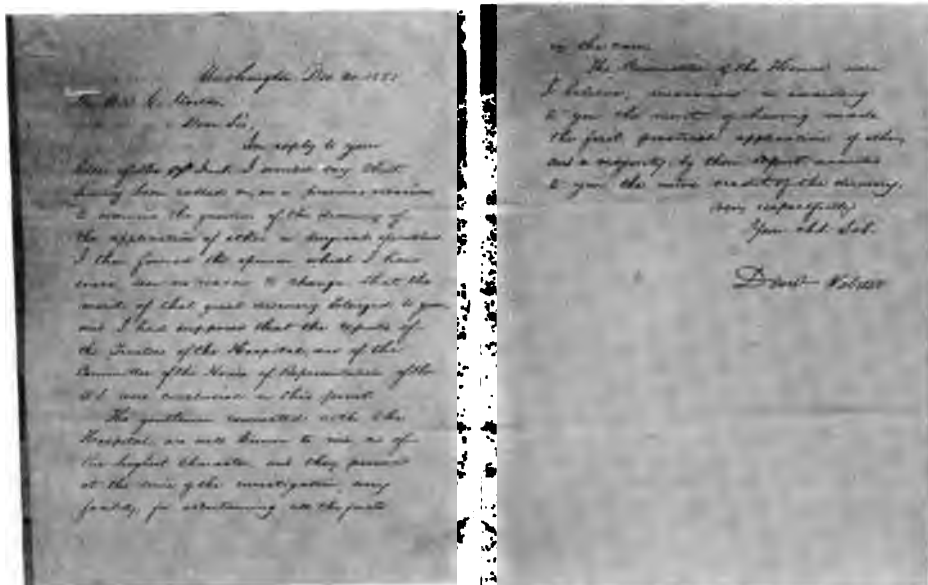 Washington Dec 20. 1851
Dr W. T. G. Morton
Dear Sir,
In reply to your
letter of the 17th Inst. I would say that
having been called on, on a previous occasion
to examine the question of the discovery of
the application of ether in surgical operations
I then formed the opinion which I have
since seen no reason to change, that the
merit of that great discovery belonged to you
and I had supposed that the reports of
the Trustees of the Hospital, and of the
Committee of the House of Representatives of the
U S were conclusive on this point.
The gentlemen connected with the
Hospital are well known to me as of
the highest character, and they possessed
at the time of the investigation every
facility for ascertaining all the facts
in the case.
The Committee of the House were
I believe, unanimous in awarding
to you the merit of having made
the first practical application of ether,
and a majority by their report awarded
to you the entire credit of the discovery.
Very respectfully
Your obt Svt.
Danl Webster